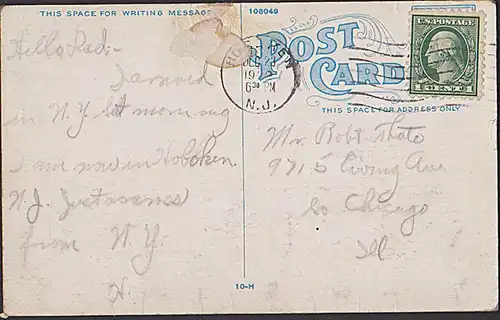 THIS SPACE FOR WRITING MESSAGE
108049
POST CARD
THIS SPACE FOR ADDRESS ONLY
U.S. POSTAGE
1 CENT 1
HOBOKEN
DEC 2
19
6 30 PM
N.J.
Hello Rad:-
I arrived
in N.Y. Sat morning
I am now in Hoboken
N.J. Just across
from N.Y.
H.
Mr. Robt. Thato
9715 Ave
So Chicago
Ill
10-H